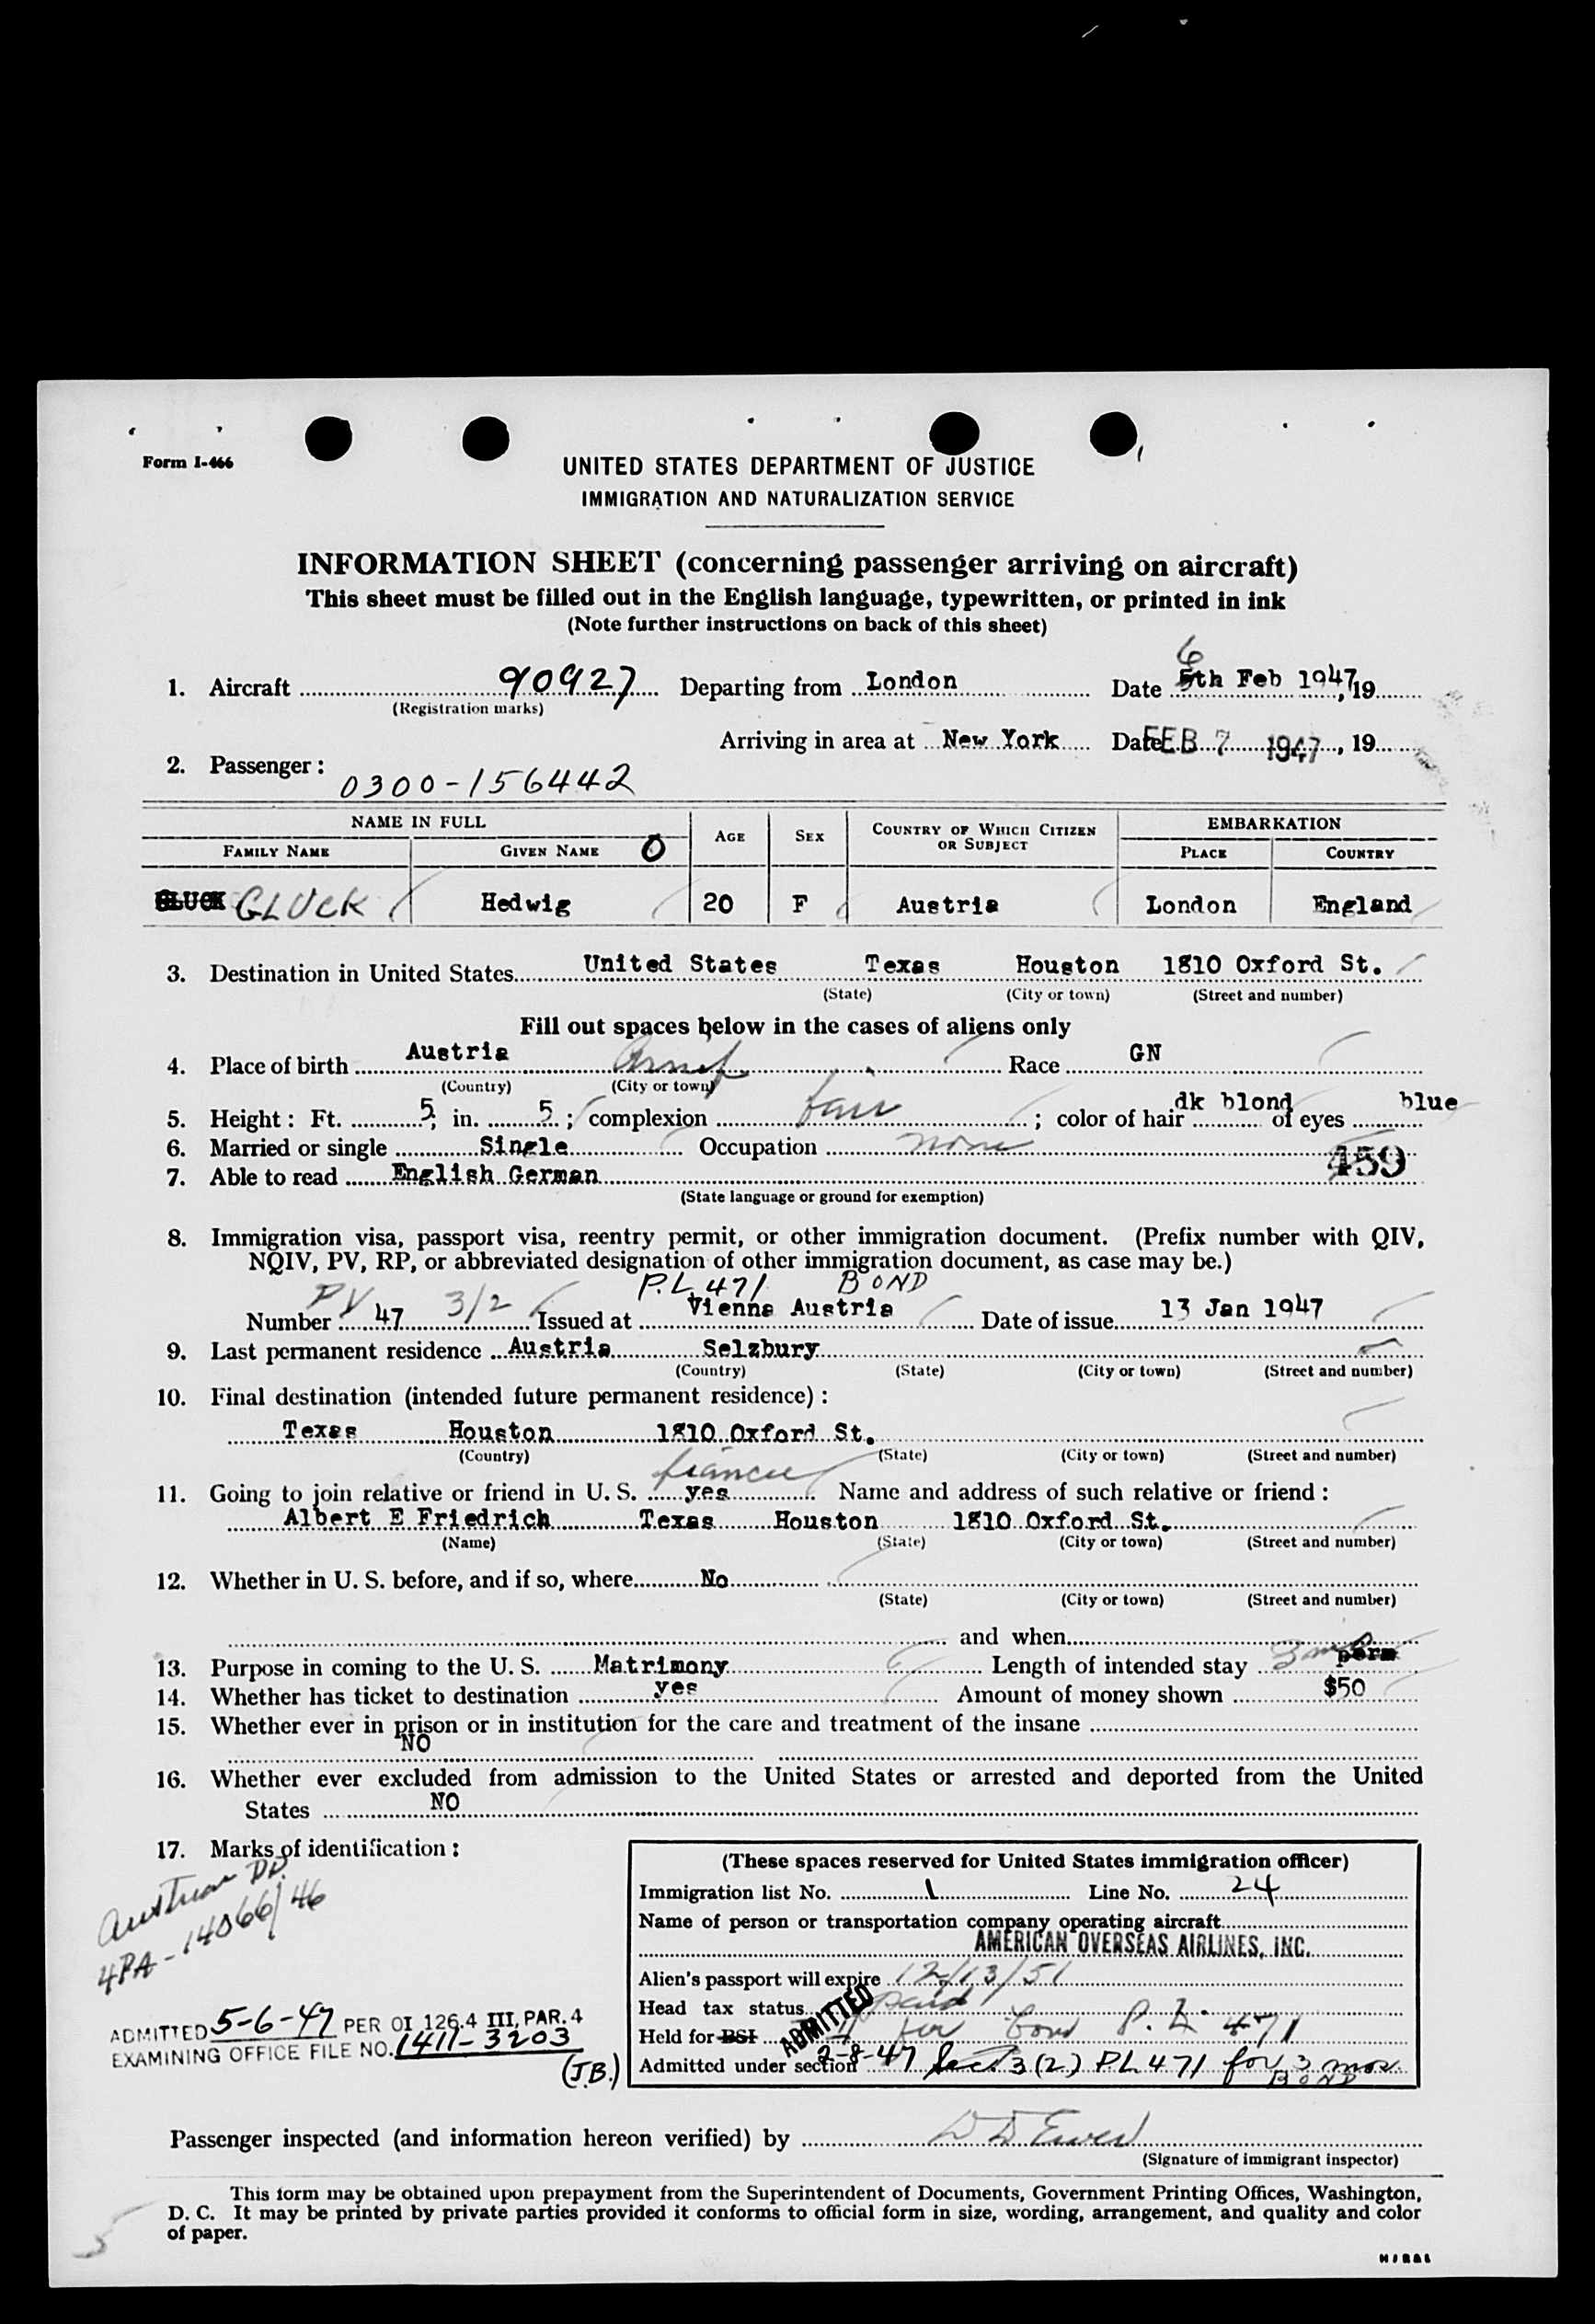 Form I-466
UNITED STATES DEPARTMENT OF JUSTICE
IMMIGRATION AND NATURALIZATION SERVICE
INFORMATION SHEET (concerning passenger arriving on aircraft)
This sheet must be filled out in the English language, typewritten, or printed in ink
(Note further instructions on back of this sheet)
6
1. Aircraft 90927 Departing from London Date 5th Feb 1947, 19
(Registration marks)
Arriving in area at New York Date FEB 7 1947, 19
2. Passenger: 0300-156442
NAME IN FULL AGE SEX COUNTRY OF WHICH CITIZEN OR SUBJECT EMBARKATION
FAMILY NAME GIVEN NAME O PLACE COUNTRY
GLUCK GLUCK Hedwig 20 F Austria London England
3. Destination in United States United States Texas Houston 1810 Oxford St.
(State) (City or town) (Street and number)
Fill out spaces below in the cases of aliens only
4. Place of birth Austria Race GN
(Country) (City or town)
5. Height: Ft. 5, in. 5; complexion fair; color of hair dk blond of eyes blue
6. Married or single Single Occupation none
459
7. Able to read English German
(State language or ground for exemption)
8. Immigration visa, passport visa, reentry permit, or other immigration document. (Prefix number with QIV,
NQIV, PV, RP, or abbreviated designation of other immigration document, as case may be.)
P.L. 471 BOND
Number PV 47 3/2 Issued at Vienna Austria Date of issue 13 Jan 1947
9. Last permanent residence Austria Salzbury
(Country) (State) (City or town) (Street and number)
10. Final destination (intended future permanent residence):
Texas Houston 1810 Oxford St.
(Country) (State) (City or town) (Street and number)
fiancee
11. Going to join relative or friend in U. S. yes Name and address of such relative or friend:
Albert E Friedrich Texas Houston 1810 Oxford St.
(Name) (State) (City or town) (Street and number)
12. Whether in U. S. before, and if so, where No
(State) (City or town) (Street and number)
and when
13. Purpose in coming to the U. S. Matrimony Length of intended stay 3 mos perm
14. Whether has ticket to destination yes Amount of money shown $50
15. Whether ever in prison or in institution for the care and treatment of the insane
NO
16. Whether ever excluded from admission to the United States or arrested and deported from the United
States NO
17. Marks of identification:
Austrian PP.
4PA-14066/46
ADMITTED 5-6-47 PER OI 126.4 III, PAR. 4
EXAMINING OFFICE FILE NO. 1411-3203
(J.B.)
(These spaces reserved for United States immigration officer)
Immigration list No. 1 Line No. 24
Name of person or transportation company operating aircraft
AMERICAN OVERSEAS AIRLINES, INC.
Alien's passport will expire 12/13/51
Head tax status paid
ADMITTED
Held for BSI for bond P.L. 471
Admitted under section 2-8-47 Sect 3(2) PL 471 for 3 mos.
BOND
Passenger inspected (and information hereon verified) by
(Signature of immigrant inspector)
This form may be obtained upon prepayment from the Superintendent of Documents, Government Printing Offices, Washington,
D. C. It may be printed by private parties provided it conforms to official form in size, wording, arrangement, and quality and color
of paper.
5